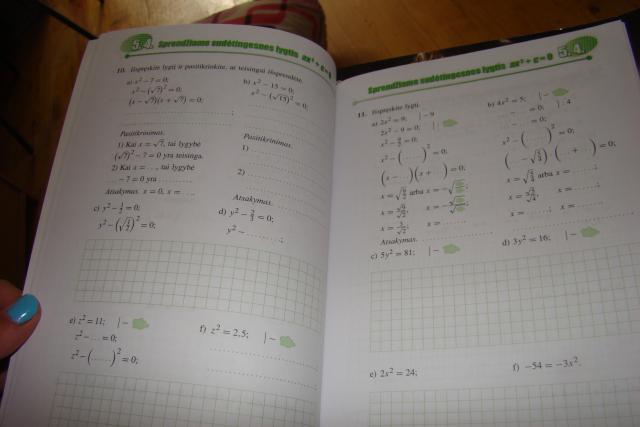 5.4. Sprendžiame sudėtingesnes lygtis ax² + c = 0
10. Išspręskite lygtį ir patikrinkite, ar teisingai išsprendėte.
a) x² − 7 = 0;
x² − (√7)² = 0;
(x − √7)(x + √7) = 0;
Patikrinimas.
1) Kai x = √7, tai lygybė
(√7)² − 7 = 0 yra teisinga.
2) Kai x = ..., tai lygybė
... − 7 = 0 yra ...
Atsakymas. x = 0, x = ...
b) x² − 15 = 0;
x² − (√15)² = 0;
Patikrinimas.
1)
2)
Atsakymas.
c) y² − 1/2 = 0;
y² − (√1/2)² = 0;
d) y² − 2/3 = 0;
y² − ...;
e) z² = 11; | −
z² − ... = 0;
z² − (......)² = 0;
f) z² = 2,5; | −
Sprendžiame sudėtingesnes lygtis ax² + c = 0 5.4.
11. Išspręskite lygtį.
a) 2x² = 9; | − 9
2x² − 9 = 0; |
x² − 9/2 = 0;
x² − (......)² = 0;
(x − ...)(x + ...) = 0;
x = √9/2 arba x = −√
x = √9/√2, x = −√
x = 3/√2; x = ...
Atsakymas.
b) 4x² = 5; | −
... − ... = 0; | : 4
... − ... = 0;
x² − (......)² = 0;
(... − √5/4)(... + ...) = 0;
x = √5/4 arba x = ...;
x = √5/√4, x = ...;
x = ...; x = ...
c) 5y² = 81; | −
d) 3y² = 16; | −
e) 2x² = 24;
f) −54 = −3x².